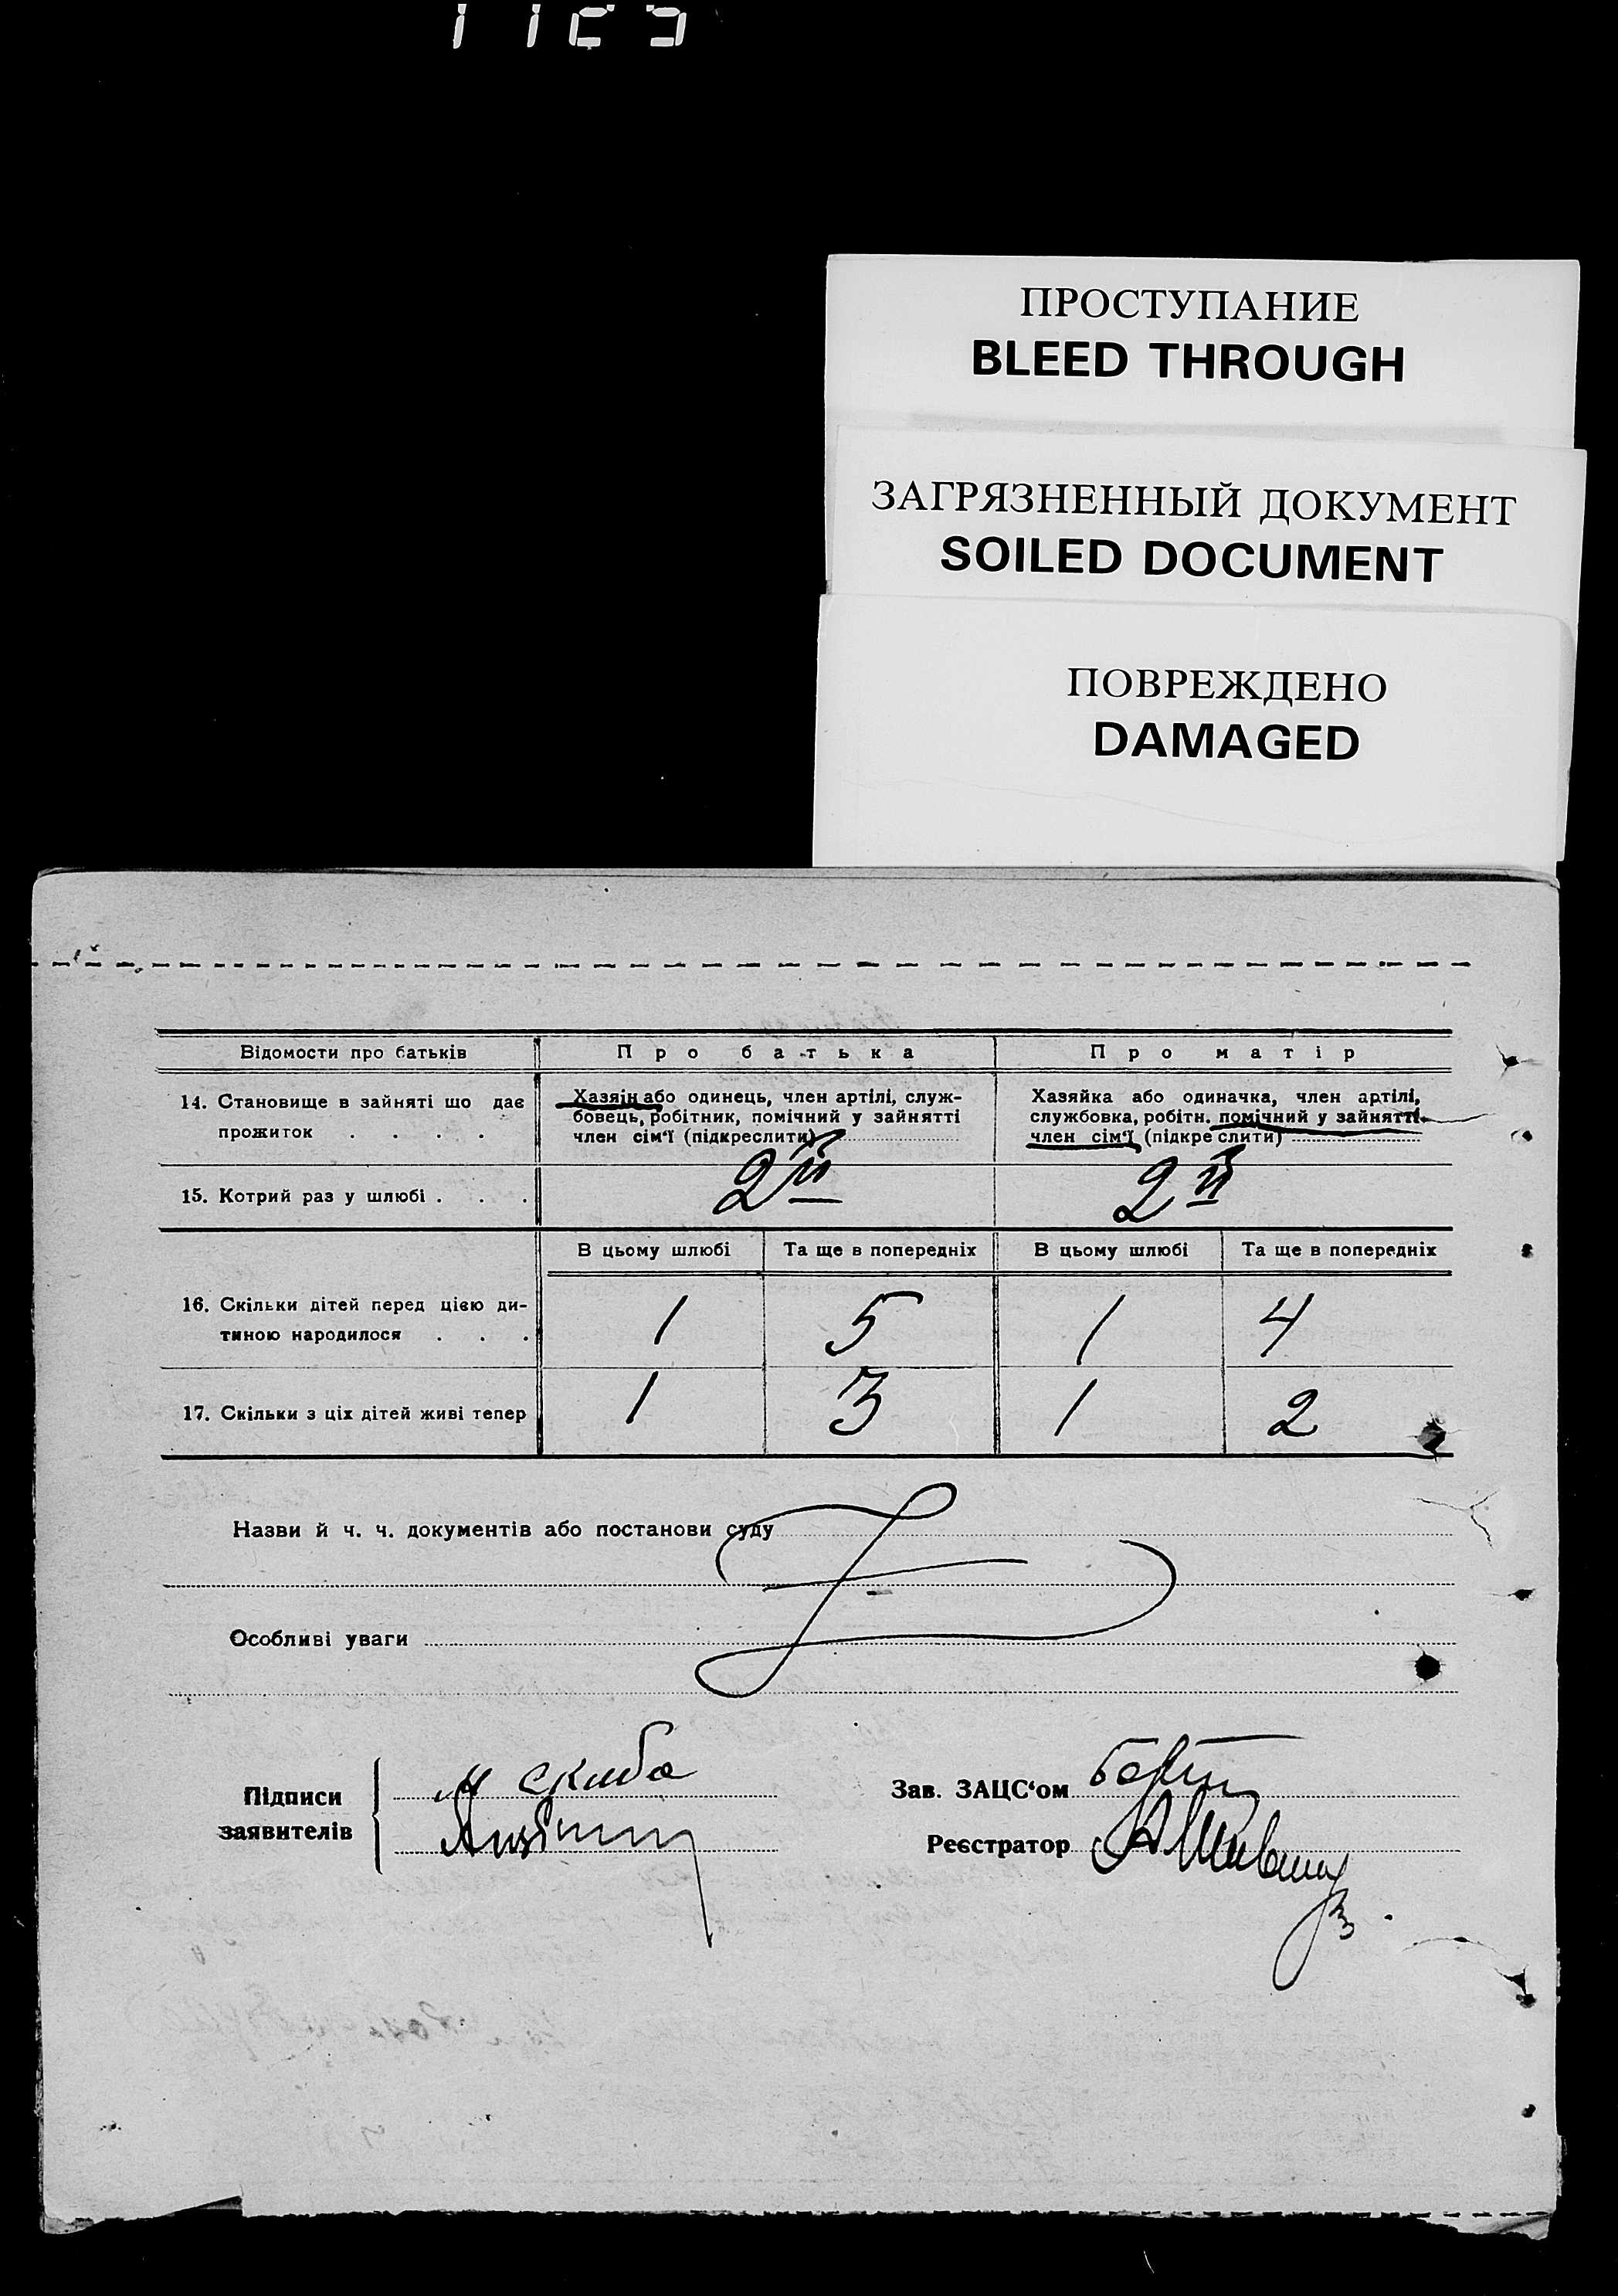 ПРОСТУПАНИЕ
BLEED THROUGH
ЗАГРЯЗНЕННЫЙ ДОКУМЕНТ
SOILED DOCUMENT
ПОВРЕЖДЕНО
DAMAGED
Відомости про батьків
Про батька
Про матір
14. Становище в зайняті що дає
прожиток . . . .
Хазяїн або одинець, член артілі, служ-
бовець, робітник, помічний у зайнятті
член сім'ї (підкреслити)
Хазяйка або одиначка, член артілі,
службовка, робітн. помічний у зайнятті
член сім'ї (підкреслити)
15. Котрий раз у шлюбі . . .
2й
2й
В цьому шлюбі
Та ще в попередніх
В цьому шлюбі
Та ще в попередніх
16. Скільки дітей перед цією ди-
тиною народилося . . .
1
5
1
4
17. Скільки з ціх дітей живі тепер
1
3
1
2
Назви й ч. ч. документів або постанови суду
Особливі уваги
Підписи
заявителів
Скиба
Зав. ЗАЦС'ом
Реєстратор